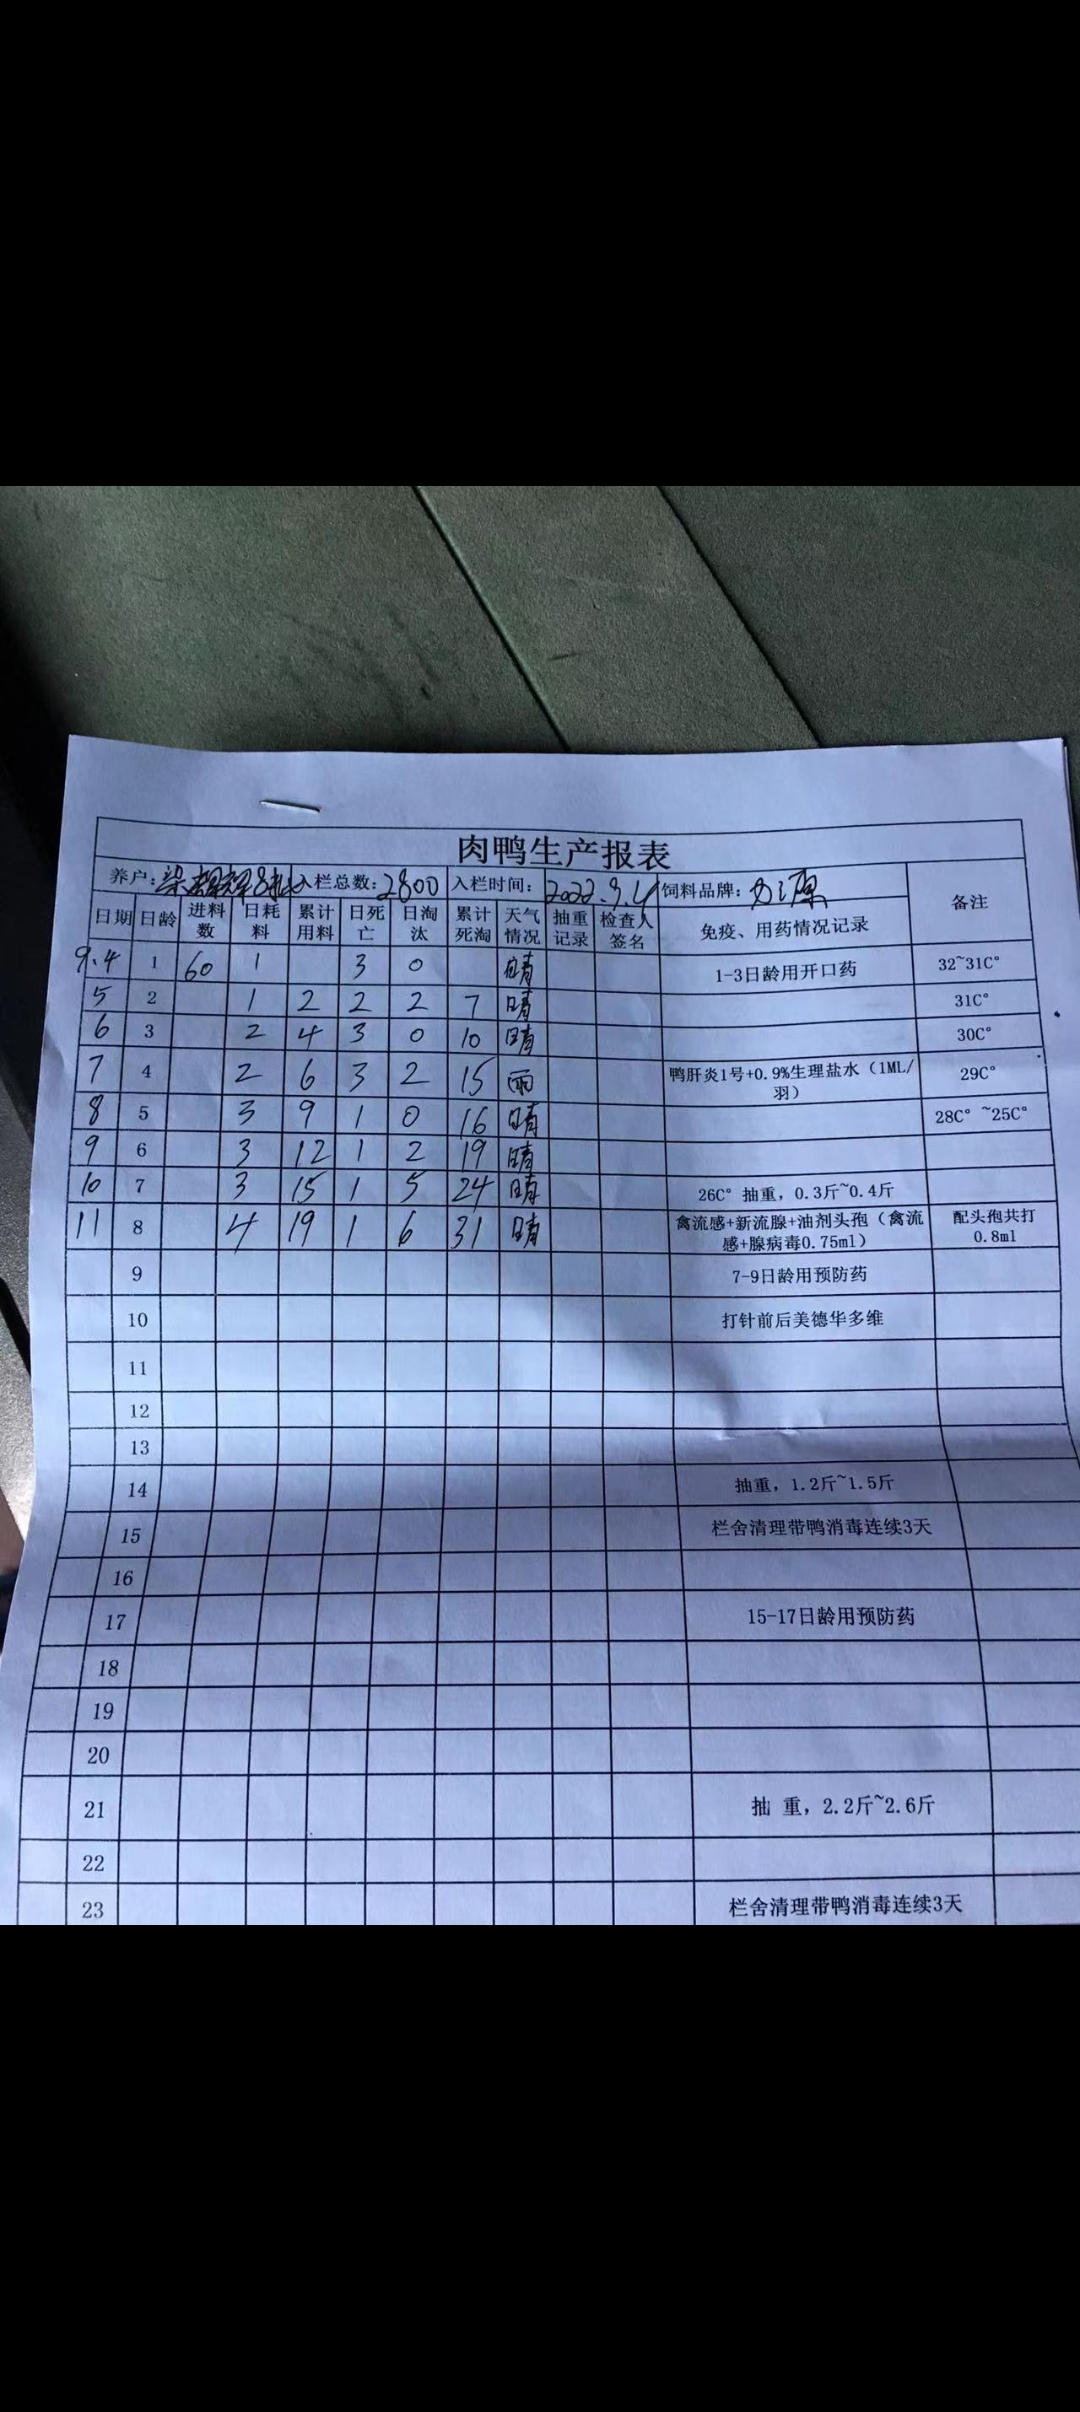 肉鸭生产报表
养户: 入栏总数:2800 入栏时间: 2022.9.4 饲料品牌:
日期 日龄 进料数 日耗料 累计用料 日死亡 日淘汰 累计死淘 天气情况 抽重记录 检查人签名 免疫、用药情况记录 备注
9.4 1 60 1 3 0 晴 1-3日龄用开口药 32~31C°
5 2 1 2 2 2 7 晴 31C°
6 3 2 4 3 0 10 晴 30C°
7 4 2 6 3 2 15 雨 鸭肝炎1号+0.9%生理盐水（1ML/羽） 29C°
8 5 3 9 1 0 16 晴 28C° ~25C°
9 6 3 12 1 2 19 晴
10 7 3 15 1 5 24 晴 26C° 抽重，0.3斤~0.4斤
11 8 4 19 1 6 31 晴 禽流感+新流腺+油剂头孢（禽流感+腺病毒0.75ml） 配头孢共打0.8ml
9 7-9日龄用预防药
10 打针前后美德华多维
11
12
13
14 抽重，1.2斤~1.5斤
15 栏舍清理带鸭消毒连续3天
16
17 15-17日龄用预防药
18
19
20
21 抽 重，2.2斤~2.6斤
22
23 栏舍清理带鸭消毒连续3天